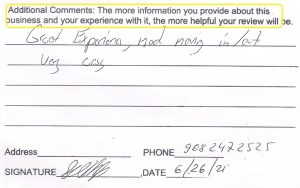 Additional Comments: The more information you provide about this
business and your experience with it, the more helpful your review will be.
Great Experience, mod mong in/out
Very easy
Address PHONE 9082472525
SIGNATURE ,DATE 6/26/21